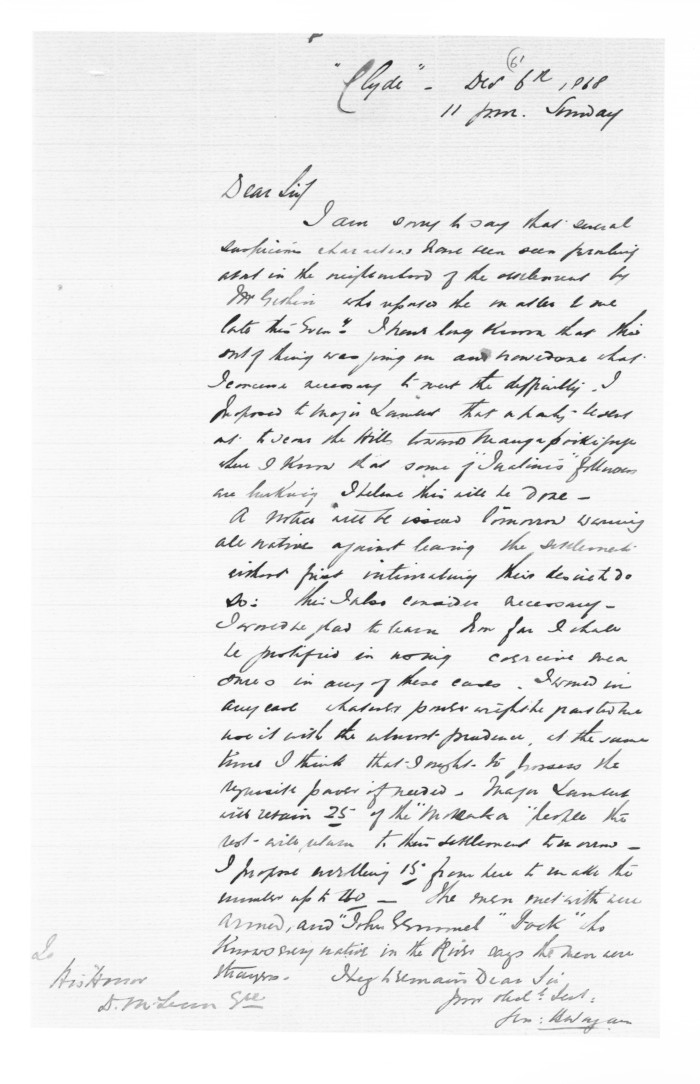 6
"Clyde" - Decr 6th 1868
11 p.m. Sunday
Dear Sir
I am sorry to say that several
suspicious characters have been seen prowling
about in the neighbourhood of the settlement by
Mr who reported the matter to me
late this Eveng. I have long known that this
sort of thing was going on and have done what
I conceive necessary to meet the difficulty. I
proposed to Major Lambert that a party be sent
out to scour the Hills toward
where I know that some of followers
are lurking I believe this will be done -
A notice will be issued tomorrow warning
all natives against leaving the settlement
without first intimating their desire to do
so: this I also consider necessary -
I would be glad to learn how far I shall
be justified in using coercive mea
sures in any of these cases. I would in
any case whatever power might be granted me
use it with the utmost prudence, at the same
time I think that I ought to possess the
requisite power if needed. Major Lambert
will retain 25 of the " " people the
rest will return to their settlement tomorrow -
I propose enrolling 15 from here to make the
number up to 40 - The men met with were
armed, and "John " "Dock" who
knows every native in the River says the men were
strangers. I beg to remain Dear Sir
Your Obedt. Servt:
To
His Honor
D. McLean Esqe